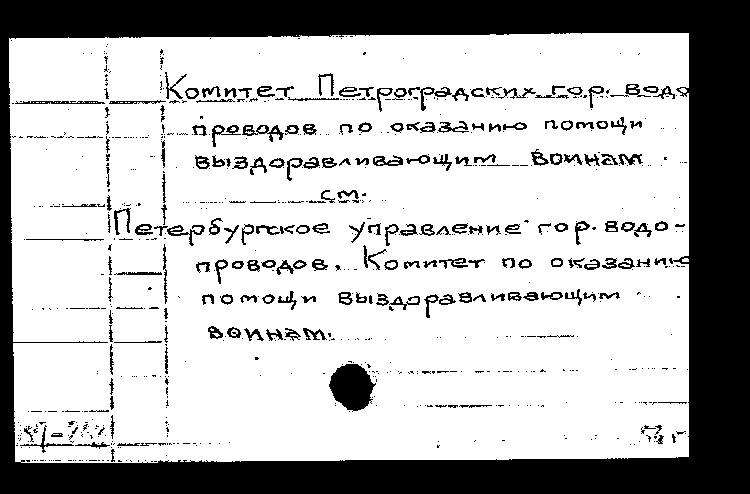 Комитет Петроградских гор. водо
проводов по оказанию помощи
выздоравливающим воинам.
см.
Петербургское управление гор. водо-
проводов. Комитет по оказанию
помощи выздоравливающим
воинам.